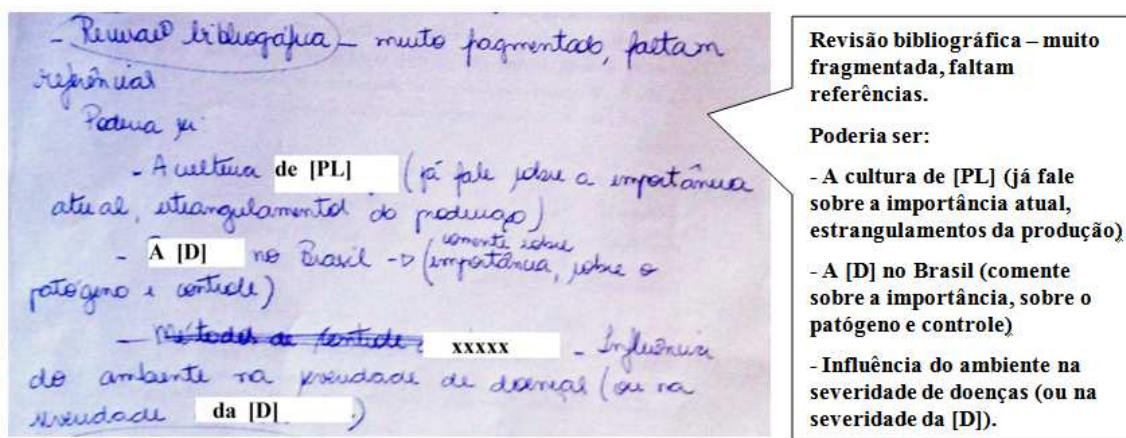 - Revisão bibliográfica – muito fragmentada, faltam
referências
Poderia ser:
- A cultura de [PL] (já fale sobre a importância
atual, estrangulamentos da produção)
comente sobre
- A [D] no Brasil -> (importância, sobre o
patógeno e controle)
- Métodos de controle xxxxx - Influência
do ambiente na severidade de doenças (ou na
severidade da [D] )
Revisão bibliográfica – muito
fragmentada, faltam
referências.
Poderia ser:
- A cultura de [PL] (já fale
sobre a importância atual,
estrangulamentos da produção)
- A [D] no Brasil (comente
sobre a importância, sobre o
patógeno e controle)
- Influência do ambiente na
severidade de doenças (ou na
severidade da [D]).